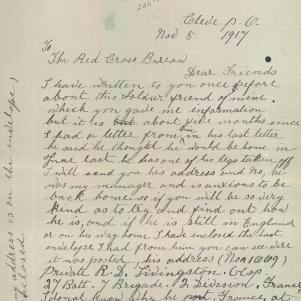 Cleve P.O.
Nov 5 1917
To
The Red Cross Bureau
Dear Friends
I have written to you once before
about this Soldier friend of mine
which you gave me information
but it is about five months since
I had a letter from him in his last letter
he said he thought he would be home in
June last he has one of his legs taken off
I will send you his address and No, he
was my manager and is anxious to be
back home. so if you will be so very
kind as to try and find out how
he is, and if he is still in England
or on his way home I have enclosed the last
envelope I had from him you can see were
it was posted, his address (No 1609)
Private R. D. Livingston. C Cop.
27 Batt. 7 Brigade. 2 Division, France,
he France, a
address is on the envelope)
enclosed